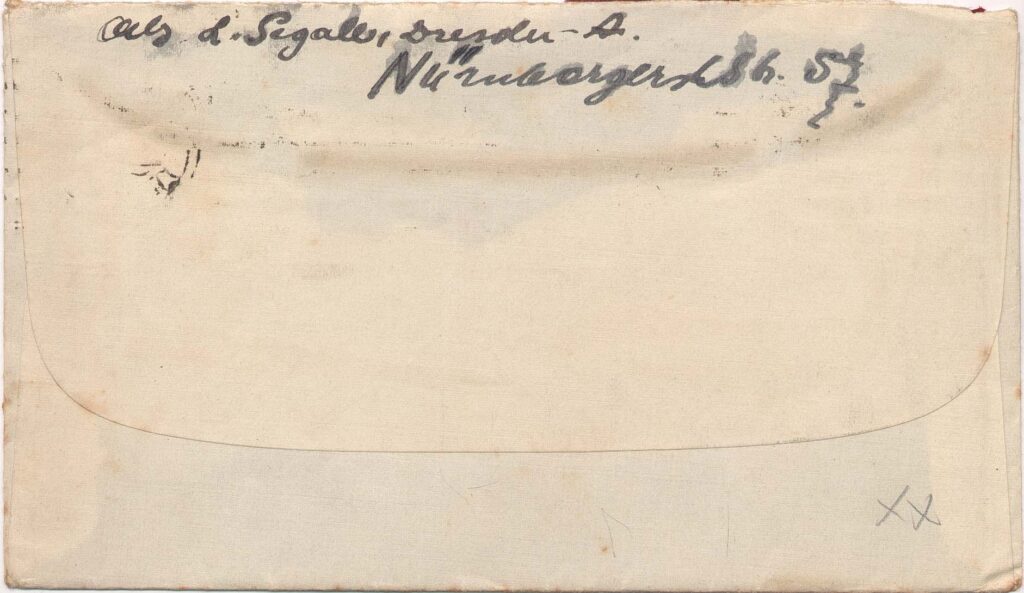 Abs L. Segall, Dresden-A.
Nürnbergerstr.
XX